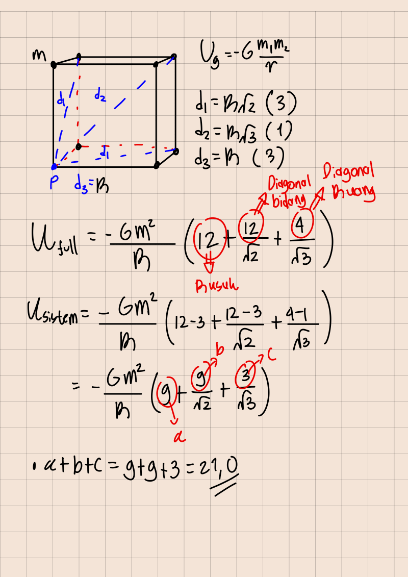 m
U_g = -G m₁m₂/r
d₁ d₂
d₁ = R√2 (3)
d₂ = R√3 (1)
d₃ = R (3)
d₁
P
d₃ = R
Diagonal bidang
Diagonal Ruang
U_full = -Gm²/R (12 + 12/√2 + 4/√3)
Rusuk
U_sistem = -Gm²/R (12-3 + 12-3/√2 + 4-1/√3)
= -Gm²/R (9 + 9/√2 + 3/√3)
a b c
• a+b+c = 9+9+3 = 21,0